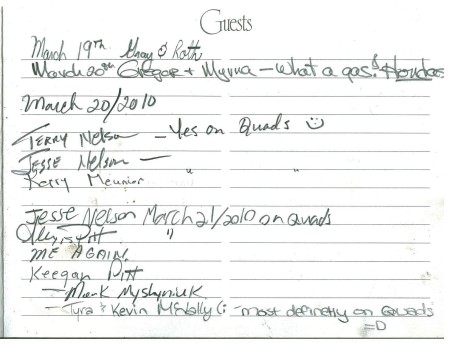 Guests
March 19th Gray & Ruth
March 20th Gregor + Myrna - What a gas! & Hondas
March 20/2010
Terry Nelson - Yes on Quads ☺
Jesse Nelson -
Kerry Meunier " "
Jesse Nelson March 21/2010 on Quads
Pitt "
ME AGAIN!
Keegan Pitt
- Mark Myshyniuk
- Tyra & Kevin McNally (: - most definetly on Quads
=D